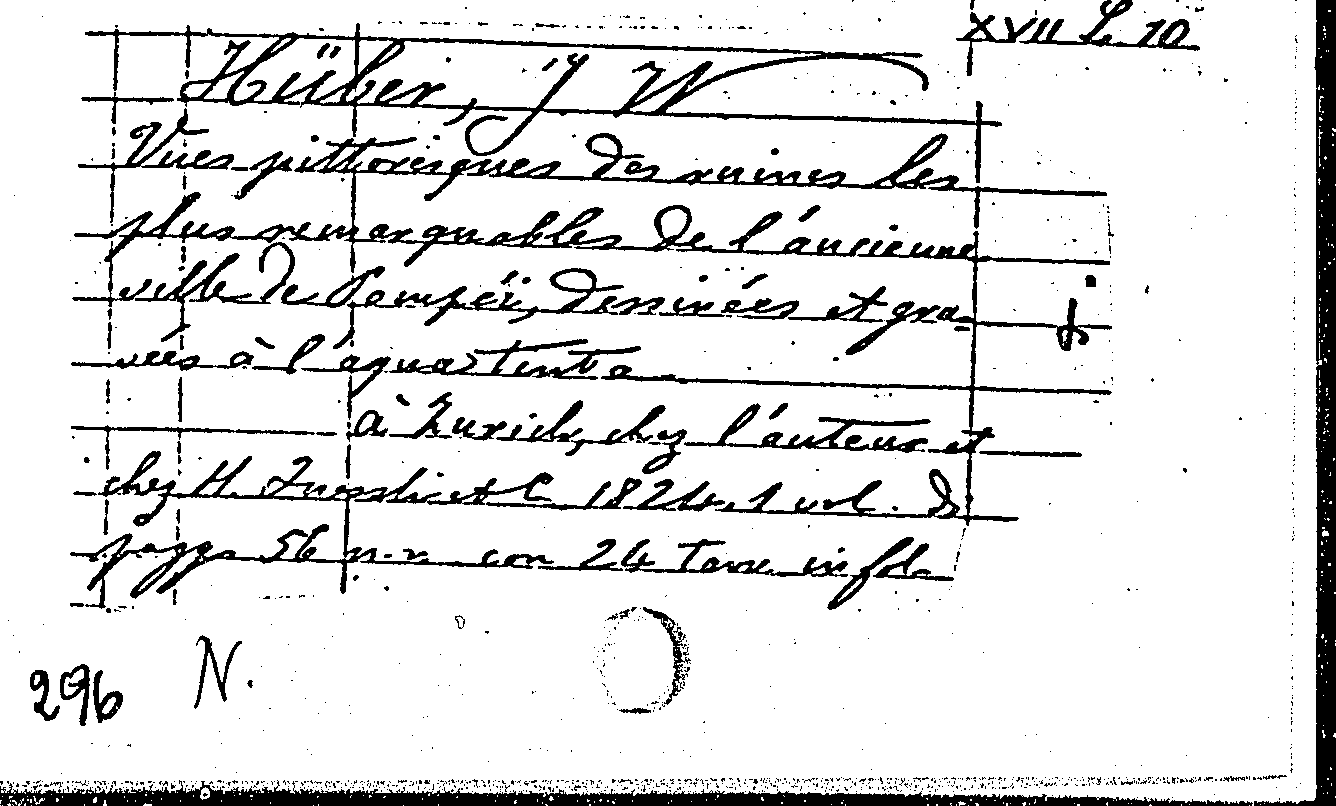 XVII L 10
Hüber, J W
Vues pittoresques des ruines les
plus remarquables de l'ancienne
ville de Pompéi, dessinées et gra-
vées à l'aquatinta
à Zurich, chez l'auteur et
chez H. Fuessli et C. 1824. 1 vol. di
pagg. 56 n.n. con 24 tavv. in fol.
296 N.